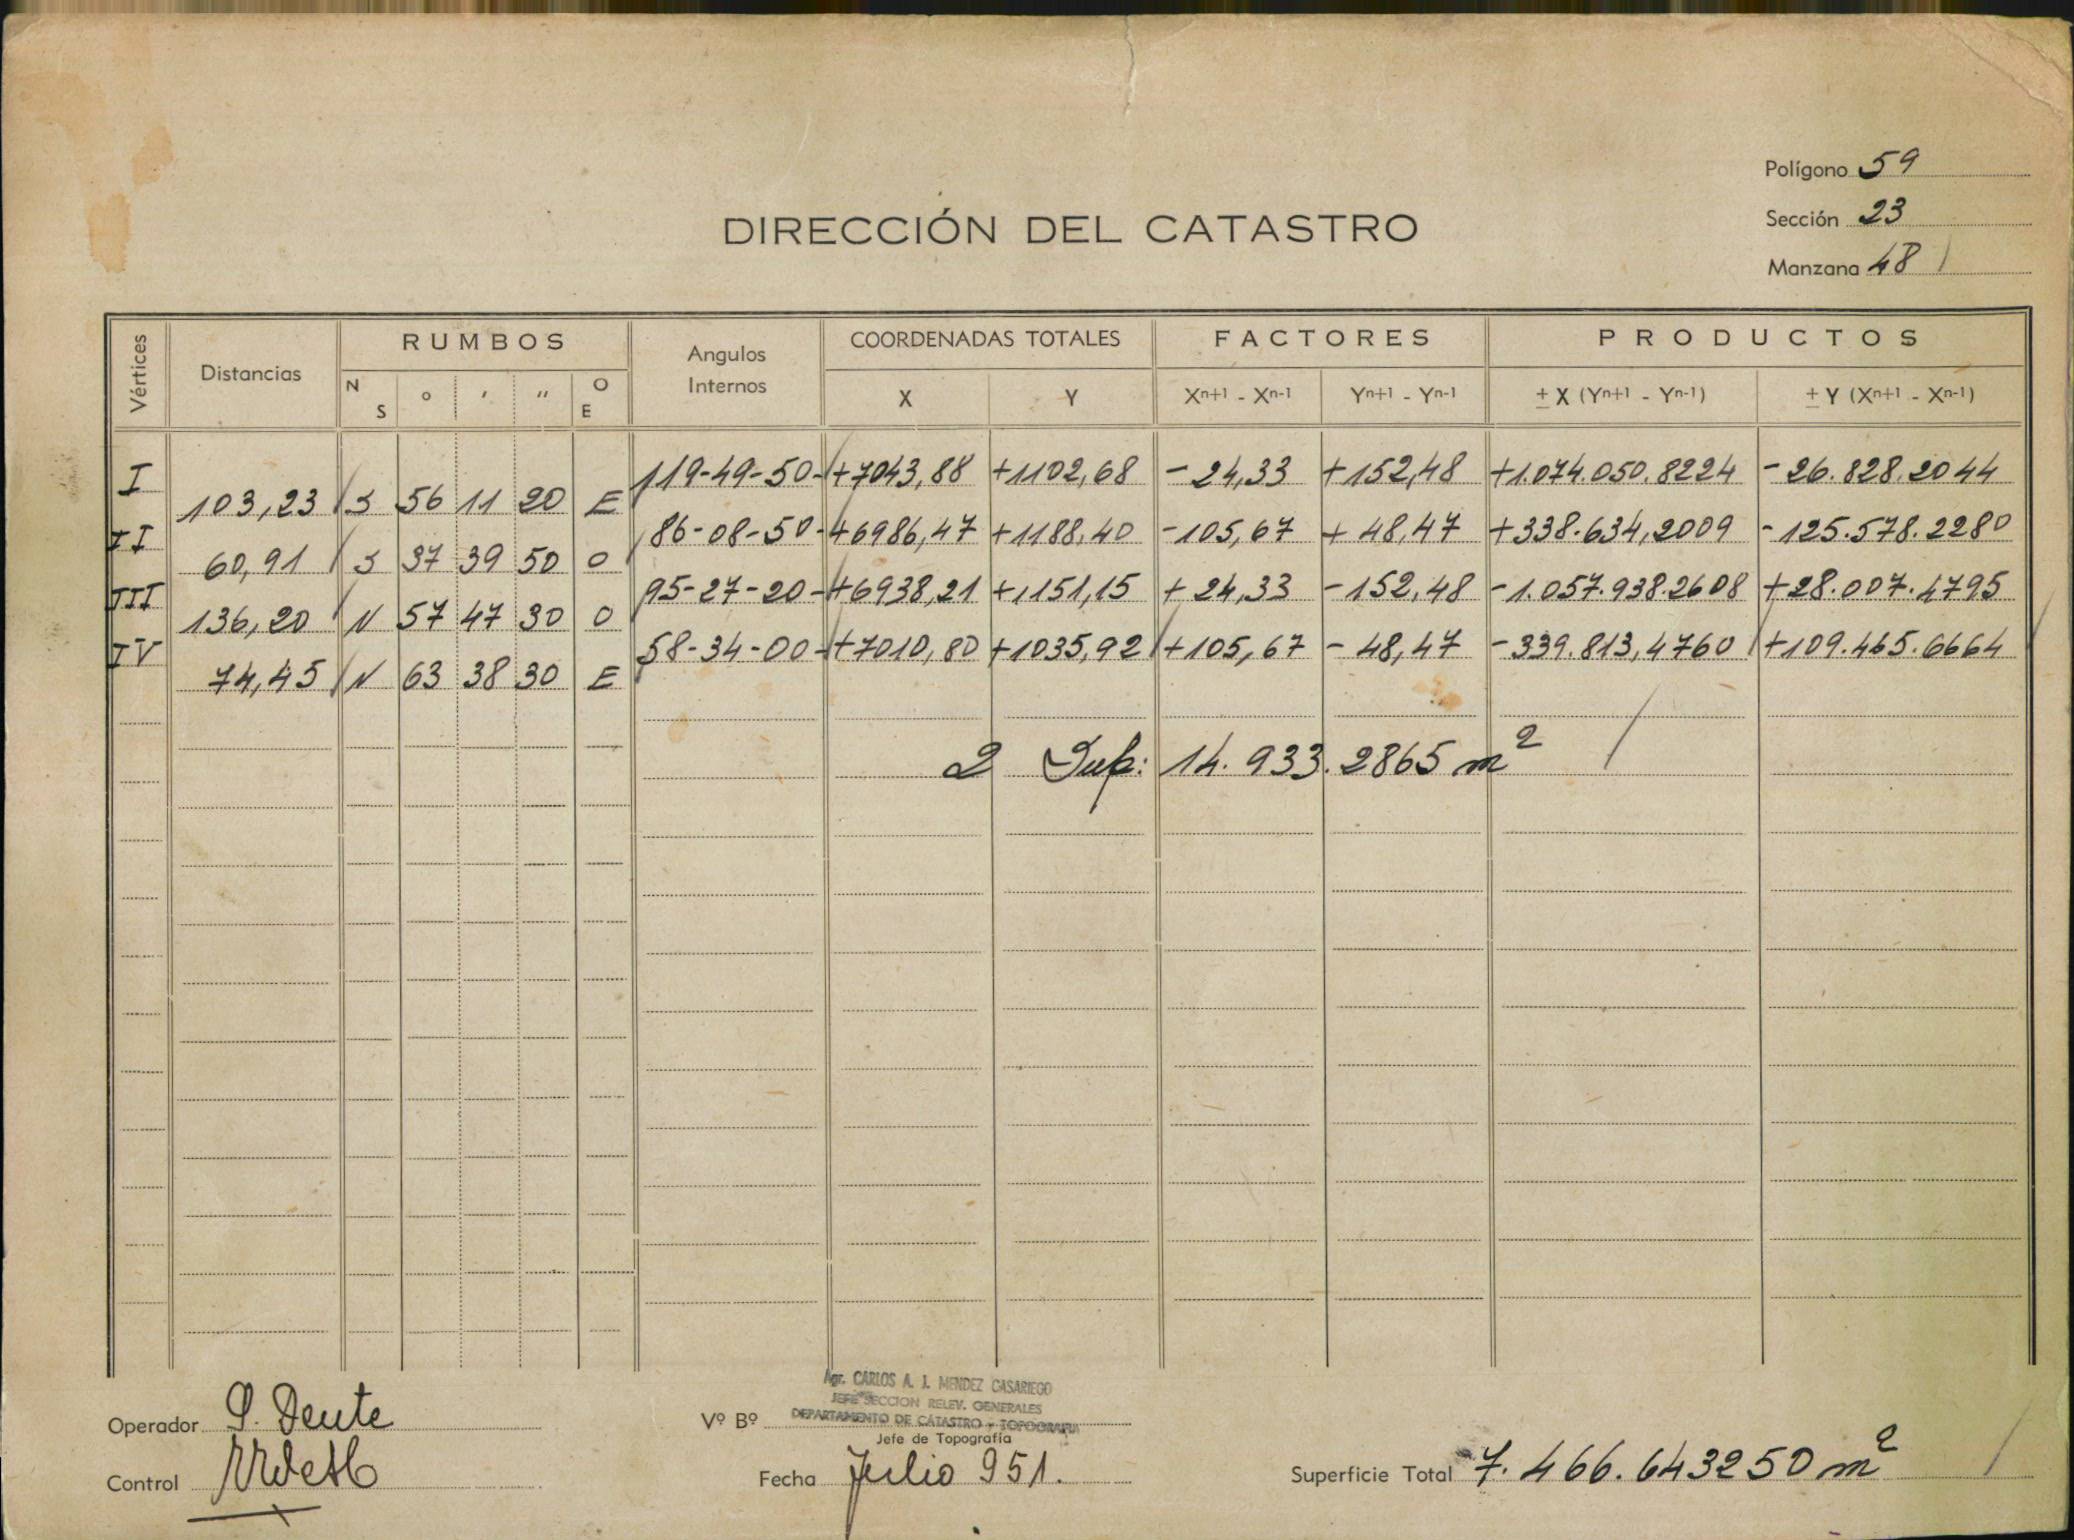 Polígono 59
Sección 23
Manzana 48
DIRECCIÓN DEL CATASTRO
Vértices Distancias RUMBOS Angulos Internos COORDENADAS TOTALES FACTORES PRODUCTOS
N S o ' '' O E X Y Xn+1 - Xn-1 Yn+1 - Yn-1 ± X (Yn+1 - Yn-1) ± Y (Xn+1 - Xn-1)
I 119-49-50 +7043,88 +1102,68 - 24,33 +152,48 +1.074.050.8224 - 26.828.2044
103,23 S 56 11 20 E
II 86-08-50 +6986,47 +1188,40 -105,67 + 48,47 +338.634,2009 -125.578.2280
60,91 S 37 39 50 O
III 95-27-20 +6938,21 +1151,15 + 24,33 -152,48 -1.057.938.2608 +28.007.4795
136,20 N 57 47 30 O
IV 58-34-00 +7010,80 +1035,92 +105,67 - 48,47 -339.813,4760 +109.465.6664
74,45 N 63 38 30 E
2 Sup: 14.933.2865 m²
Agr. CARLOS A. J. MENDEZ CASARIEGO
JEFE SECCION RELEV. GENERALES
DEPARTAMENTO DE CATASTRO y TOPOGRAFIA
Operador Vº Bº
Jefe de Topografía
Control Fecha Julio 951. Superficie Total 7.466.643250 m²